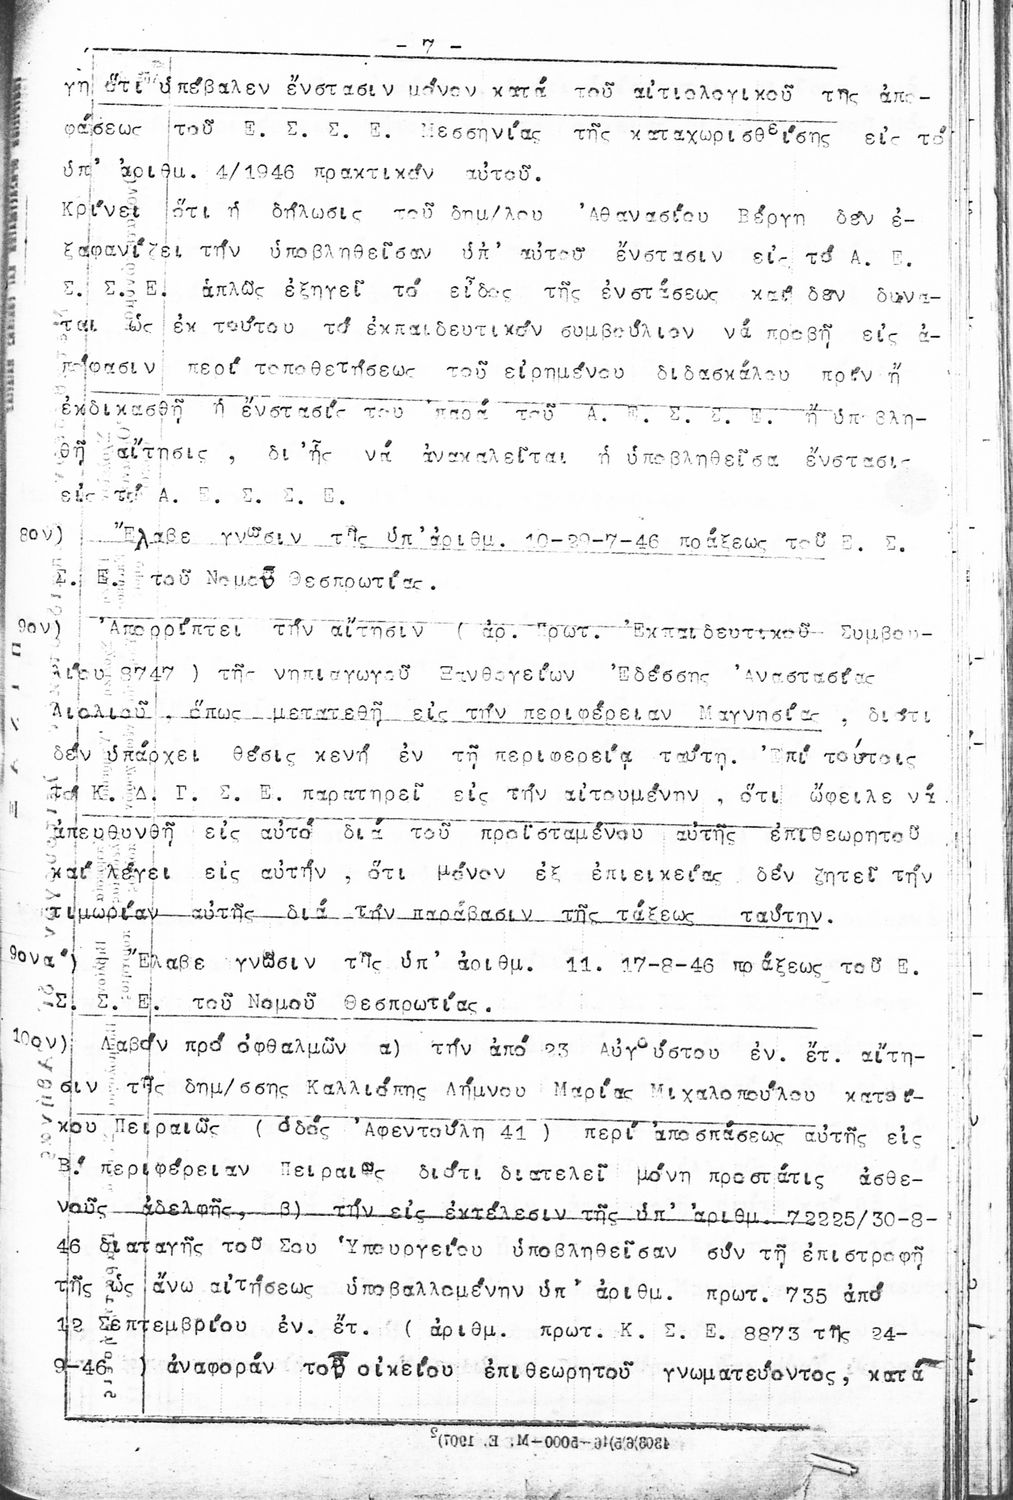 - 7 -
γη ὅτι ὑπέβαλεν ἔνστασιν μόνον κατά τοῦ αἰτιολογικοῦ της ἀπο-
φάσεως τοῦ Ε. Σ. Σ. Ε. Μεσσηνίας τῆς καταχωρισθείσης εἰς τό
ὑπ' ἀριθμ. 4/1946 πρακτικόν αὐτοῦ.
Κρίνει ὅτι ἡ δήλωσις τοῦ δημ/λου 'Αθανασίου Βέργη δέν ἐ-
ξαφανίζει τήν ὑποβληθεῖσαν ὑπ' αὐτοῦ ἔνστασιν εἰς τό Α. Ε.
Σ. Σ. Ε. ἁπλῶς ἐξηγεῖ τό εἶδος τῆς ἐνστάσεως καί δέν δυνα-
ται ὡς ἐκ τούτου τό ἐκπαιδευτικόν συμβούλιον νά προβῆ εἰς ἀ-
πόφασιν περί τοποθετήσεως τοῦ εἰρημένου διδασκάλου πρίν ἤ
ἐκδικασθῆ ἡ ἔνστασίς του παρά τοῦ Α. Ε. Σ. Σ. Ε. ἤ ὑποβλη-
θῆ αἴτησις , δι 'ἧς νά ἀνακαλεῖται ἡ ὑποβληθεῖσα ἔνστασις
εἰς τό Α. Ε. Σ. Σ. Ε.
8ον) Ἔλαβε γνῶσιν τῆς ὑπ'ἀριθμ. 10-29-7-46 πράξεως τοῦ Ε. Σ.
Σ. Ε. τοῦ Νομοῦ Θεσπρωτίας.
9ον) 'Απορρίπτει τήν αἴτησιν ( ἀρ. Πρωτ. Ἐκπαιδευτικοῦ Συμβου-
λίου 8747 ) τῆς νηπιαγωγοῦ Ξανθογείων 'Εδέσσης 'Αναστασίας
Λιολιοῦ , ὅπως μετατεθῆ εἰς τήν περιφέρειαν Μαγνησίας , διότι
δέν ὑπάρχει θέσις κενή ἐν τῆ περιφερεία ταύτη. Ἐπί τούτοις
τό Κ. Δ. Γ. Σ. Ε. παρατηρεῖ εἰς τήν αἰτουμένην , ὅτι ὤφειλε νά
ἀπευθυνθῆ εἰς αὐτό διά τοῦ προϊσταμένου αὐτῆς ἐπιθεωρητοῦ
καί λέγει εἰς αὐτήν , ὅτι μόνον ἐξ ἐπιεικείας δέν ζητεῖ τήν
τιμωρίαν αὐτῆς διά τήν παράβασιν τῆς τάξεως ταύτην.
9ονα') Ἔλαβε γνῶσιν τῆς ὑπ' ἀριθμ. 11. 17-8-46 πράξεως τοῦ Ε.
Σ. Σ. Ε. τοῦ Νομοῦ Θεσπρωτίας.
10ον) Λαβόν πρό ὀφθαλμῶν α) τήν ἀπό 23 Αὐγούστου ἐν. ἔτ. αἴτη-
σιν τῆς δημ/σσης Καλλιόπης Λήμνου Μαρίας Μιχαλοπούλου κατοί-
κου Πειραιῶς ( ὁδός 'Αφεντούλη 41 ) περί ἀποσπάσεως αὐτῆς εἰς
Β! περιφέρειαν Πειραιῶς διότι διατελεῖ μόνη προστάτις ἀσθε-
νοῦς ἀδελφῆς, β) τήν εἰς ἐκτέλεσιν τῆς ὑπ' ἀριθμ. 72225/30-8-
46 διαταγῆς τοῦ Σου Ὑπουργείου ὑποβληθεῖσαν σύν τῆ ἐπιστροφῆ
τῆς ὡς ἄνω αἰτήσεως ὑποβαλλομένην ὑπ' ἀριθμ. πρωτ. 735 ἀπό
12 Σεπτεμβρίου ἐν. ἔτ. ( ἀριθμ. πρωτ. Κ. Σ. Ε. 8873 τῆς 24-
9-46 ) ἀναφοράν τοῦ οἰκείου ἐπιθεωρητοῦ γνωματεύοντος, κατά